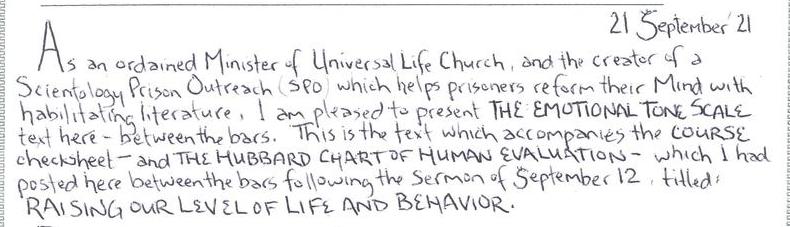 21 September '21
As an ordained Minister of Universal Life Church, and the creator of a
Scientology Prison Outreach (SPO) which helps prisoners reform their Mind with
habilitating literature, I am pleased to present THE EMOTIONAL TONE SCALE
text here - between the bars. This is the text which accompanies the COURSE
checksheet - and THE HUBBARD CHART OF HUMAN EVALUATION - which I had
posted here between the bars following the Sermon of September 12, titled:
RAISING OUR LEVEL OF LIFE AND BEHAVIOR.